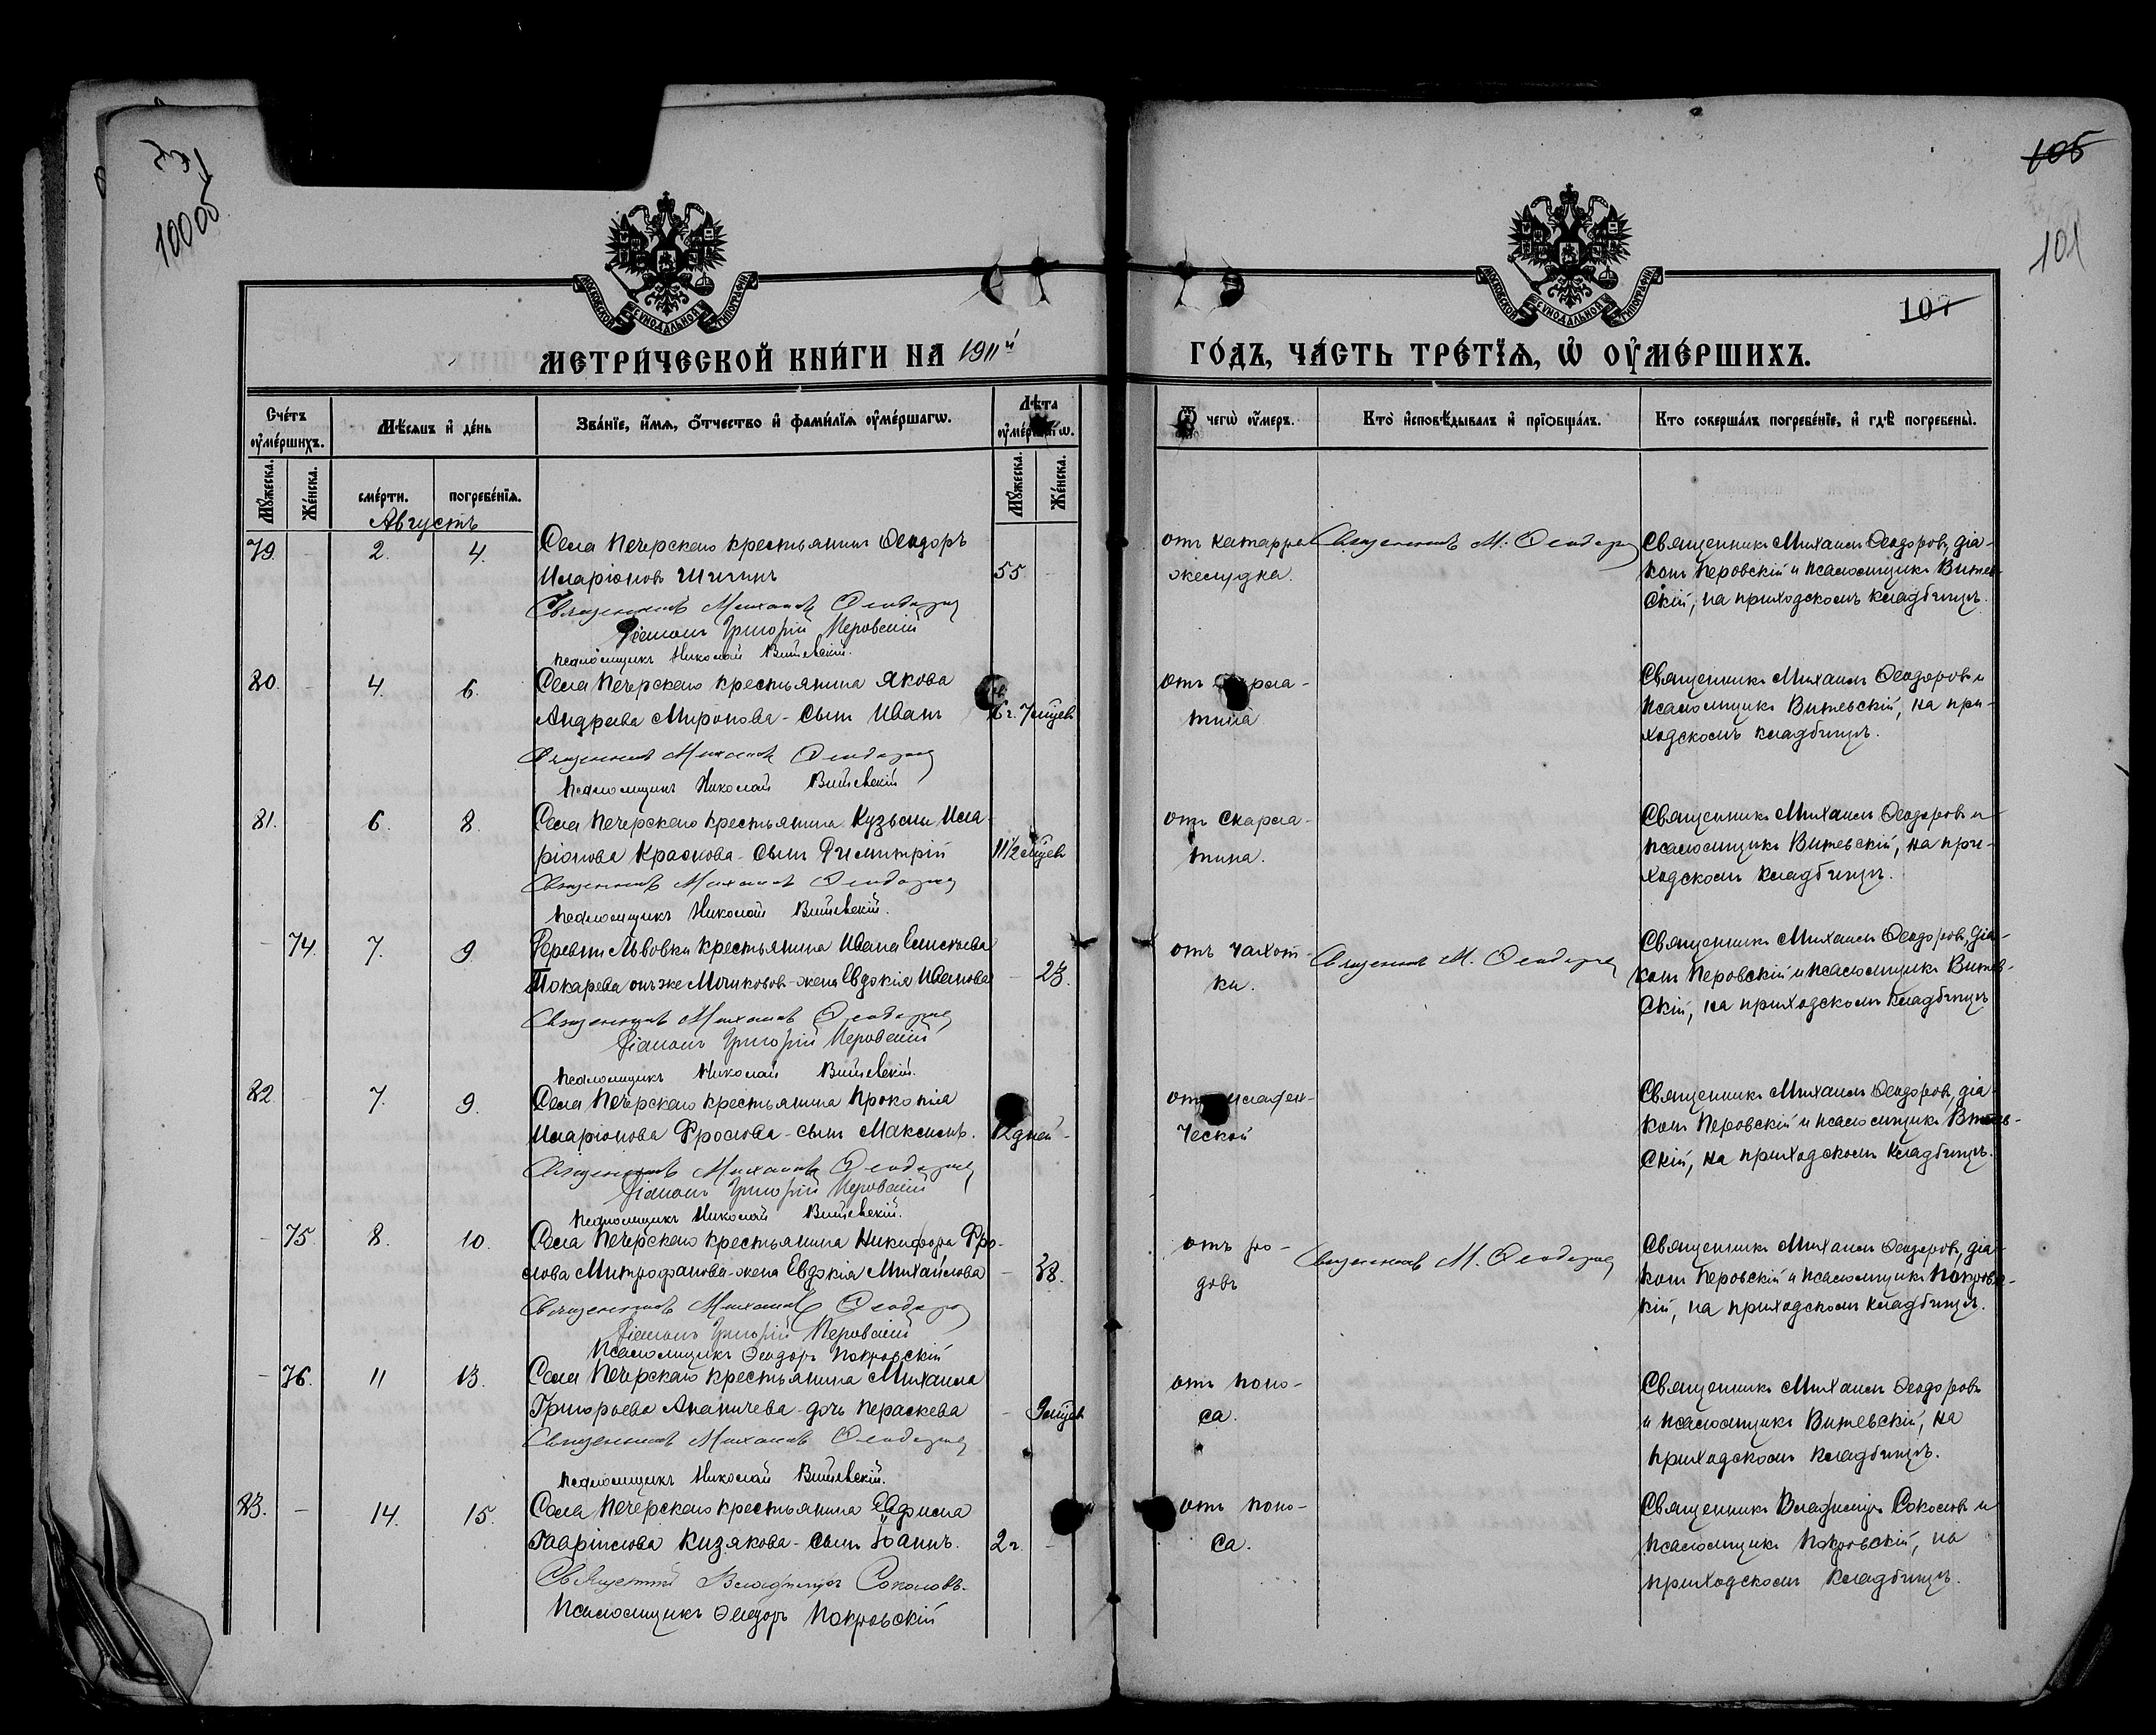 10005
105
101
107
МОСКОВСКОЙ СѴНОДАЛЬНОЙ ТИПОГРАФІИ
МОСКОВСКОЙ СѴНОДАЛЬНОЙ ТИПОГРАФІИ
МЕТРИ́ЧЕСКОЙ КНИ́ГИ НА 1911й
ГО́ДЪ, ЧА́СТЬ ТРЕ́ТЇѦ, Ѡ҆ ОУ҆МЕ́РШИХЪ.
Сче́тъ оу҆ме́ршихъ.
Мѣ́сѧцъ и҆ де́нь
Зва́нїе, и҆́мѧ, ѻ҆́тчество и҆ фами́лїѧ оу҆ме́ршагѡ.
Лѣ́та оу҆ме́ршагѡ.
Ѿ чегѡ̀ оу҆́меръ.
Кто̀ и҆сповѣ́дывалъ и҆ прїѡбща́лъ.
Кто̀ соверша́лъ погребе́нїе, и҆ гдѣ̀ погребены̀.
Мꙋ́жеска.
Же́нска.
сме́рти.
погребе́нїѧ.
Мꙋ́жеска.
Же́нска.
Августъ
79. - 2. 4. Села Печерскаго крестьянинъ Ѳеодоръ
Иларіоновъ Шигинъ 55 -
Священникъ Михаилъ Ѳеодоровъ
Діаконъ Григорій Перовскій
псаломщикъ Николай Витевскій.
отъ катарра
желудка.
Священникъ М. Ѳеодоровъ
Священникъ Михаилъ Ѳеодоровъ, діа-
конъ Перовскій и псаломщикъ Витев-
скій, на приходскомъ кладбищѣ.
80. - 4. 6. Села Печерскаго крестьянина Якова
Андреева Миронова - сынъ Иванъ 7 мѣцевъ
Священникъ Михаилъ Ѳеодоровъ
псаломщикъ Николай Витевскій
отъ скарла-
тина
Священникъ Михаилъ Ѳеодоровъ и
псаломщикъ Витевскій, на при-
ходскомъ кладбищѣ.
81. - 6. 8. Села Печерскаго крестьянина Кузьмы Ила-
ріонова Краснова - сынъ Димитрій 11 1/2 мѣцевъ
Священникъ Михаилъ Ѳеодоровъ
псаломщикъ Николай Витевскій.
отъ скарла-
тина.
Священникъ Михаилъ Ѳеодоровъ и
псаломщикъ Витевскій, на при-
ходскомъ кладбищѣ.
- 74. 7. 9 Деревни Львовки крестьянина Ивана Елисѣева
Токарева онъ же - жена Евдокія Иванова - 23.
Священникъ Михаилъ Ѳеодоровъ
Діаконъ Григорій Перовскій
псаломщикъ Николай Витевскій.
отъ чахот-
ки.
Священникъ М. Ѳеодоровъ
Священникъ Михаилъ Ѳеодоровъ, діа-
конъ Перовскій и псаломщикъ Витев-
скій, на приходскомъ кладбищѣ
82 - 7. 9. Села Печерскаго крестьянина Прокопія
Иларіонова Фролова - сынъ Максимъ. 12 дней -
Священникъ Михаилъ Ѳеодоровъ
Діаконъ Григорій Перовскій
псаломщикъ Николай Витевскій.
отъ младен-
ческой
Священникъ Михаилъ Ѳеодоровъ, діа-
конъ Перовскій и псаломщикъ Витев-
скій, на приходскомъ кладбищѣ.
- 75. 8. 10. Села Печерскаго крестьянина Никифора Фро-
лова Митрофанова - жена Евдокія Михайлова - 38.
Священникъ Михаилъ Ѳеодоровъ
Діаконъ Григорій Перовскій
Псаломщикъ Ѳеодоръ Покровскій
отъ ро-
довъ
Священникъ М. Ѳеодоровъ
Священникъ Михаилъ Ѳеодоровъ, діа-
конъ Перовскій и псаломщикъ Покровс-
кій, на приходскомъ кладбищѣ.
- 76. 11 13. Села Печерскаго крестьянина Михаила
Григорьева Ананичева - дочь Параскева - 9 мѣцев
Священникъ Михаилъ Ѳеодоровъ
псаломщикъ Николай Витевскій.
отъ поно-
са.
Священникъ Михаилъ Ѳеодоровъ
и псаломщикъ Витевскій, на
приходскомъ кладбищѣ.
83. - 14. 15. Села Печерскаго крестьянина
Гавріилова Кизякова - сынъ Іоаннъ. 2 г. -
Священникъ Владимиръ Соколовъ.
Псаломщикъ Ѳеодоръ Покровскій
отъ поно-
са.
Священникъ Владимиръ Соколовъ и
псаломщикъ Покровскій, на
приходскомъ кладбищѣ.